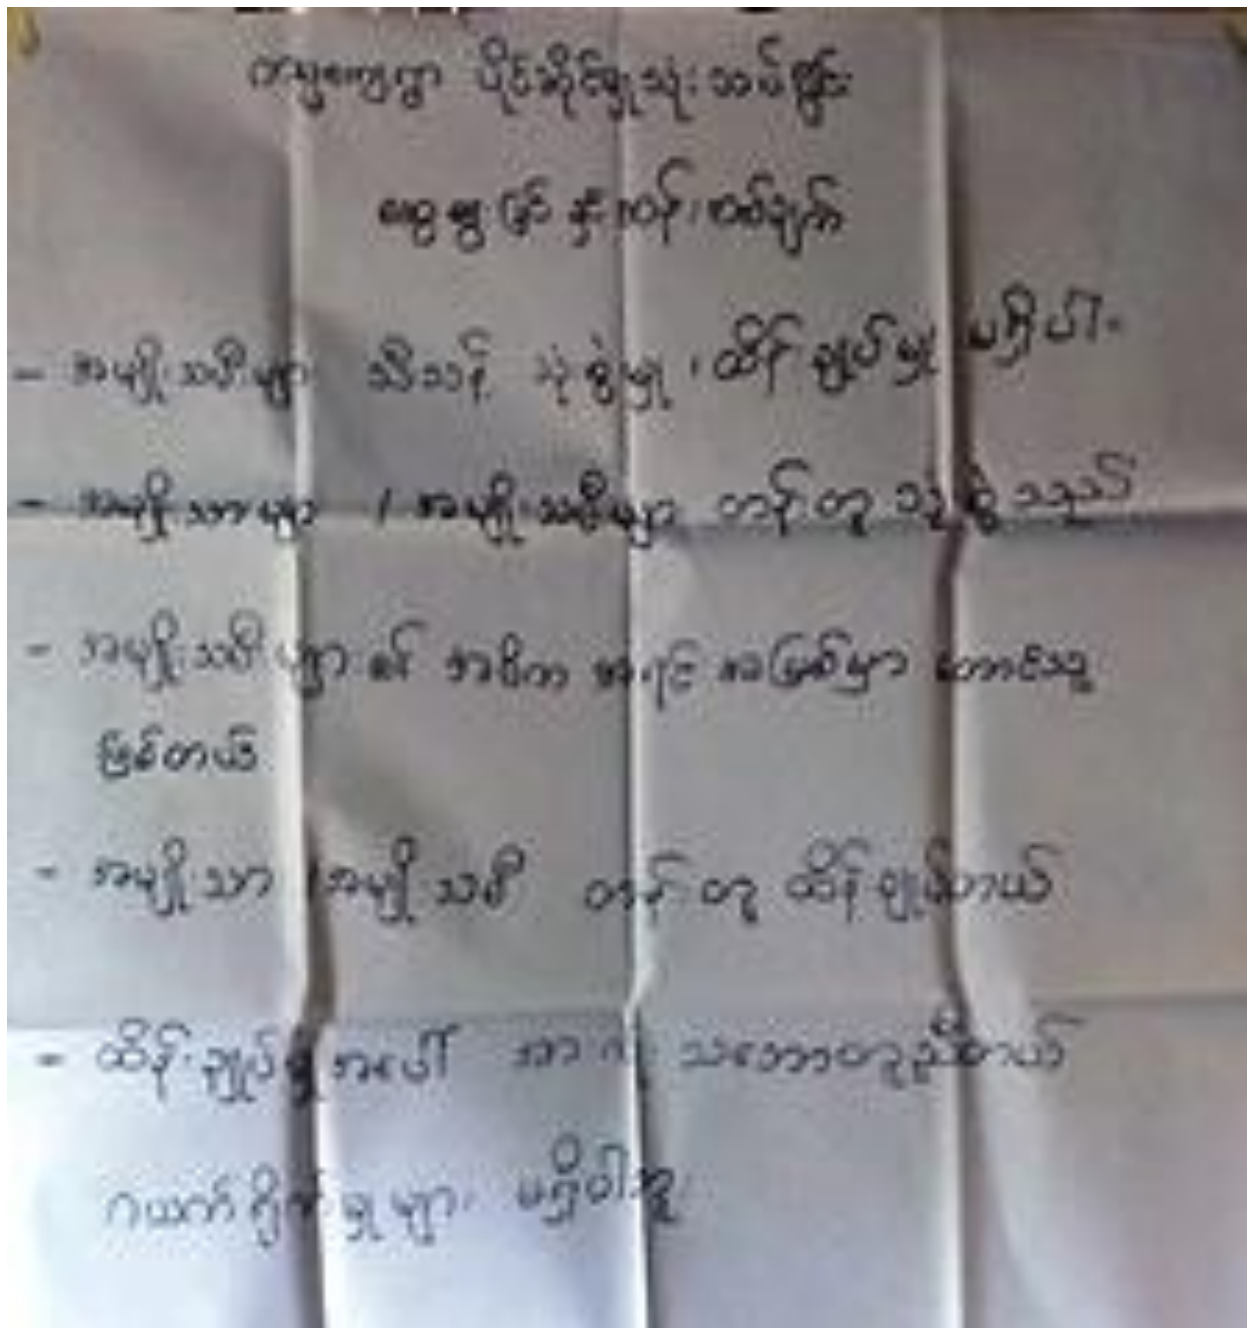 ကမ္ဘာမြေကွာ ပိုင်ဆိုင်မှုသုံးသပ်ခြင်း
ဆွေးနွေးခြင်
- အမျိုးသမီးများ သီးသန့် သုံးစွဲမှု၊ ထိန်းချုပ်မှု မရှိပါ။
- အမျိုးသားများ / အမျိုးသမီးများ တန်းတူ သုံးစွဲသည်
- အမျိုးသမီးများ၏ အဓိက အရင်းအမြစ်မှာ တောင်သူ
ဖြစ်တယ်
- အမျိုးသား / အမျိုးသမီး တန်းတူ ထိန်းချုပ်တယ်
- ထိန်းချုပ်မှုအပေါ် သဘောတူညီတယ်
ဂယက်ရိုက်မှုများ မရှိပါဘူး